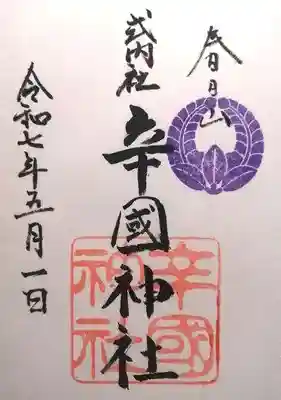 春日山
式内社
辛國神社
辛國
神社
令和七年五月一日